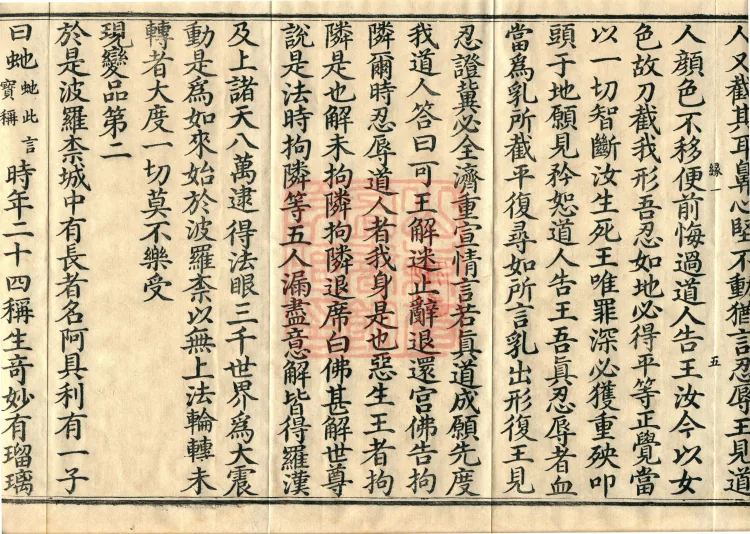 人又截其耳鼻心堅不動猶言忍辱王見道
緣一
五
人顏色不移便前悔過道人告王汝今以女
色故刀截我形吾忍如地必得平等正覺當
以一切智斷汝生死王唯罪深必獲重殃叩
頭于地願見矜恕道人告王吾真忍辱者血
當為乳所截平復尋如所言乳出形復王見
忍證冀必全濟重宣情言若真道成願先度
我道人答曰可王解迷止辭退還宮佛告拘
隣爾時忍辱道人者我身是也惡生王者拘
隣是也解未拘隣拘隣退席白佛甚解世尊
說是法時拘隣等五人漏盡意解皆得羅漢
及上諸天八萬逮得法眼三千世界為大震
動是為如來始於波羅柰以無上法輪轉未
轉者大度一切莫不樂受
現變品第二
於是波羅柰城中有長者名阿具利有一子
曰虵虵此言寶稱時年二十四稱生奇妙有瑠璃